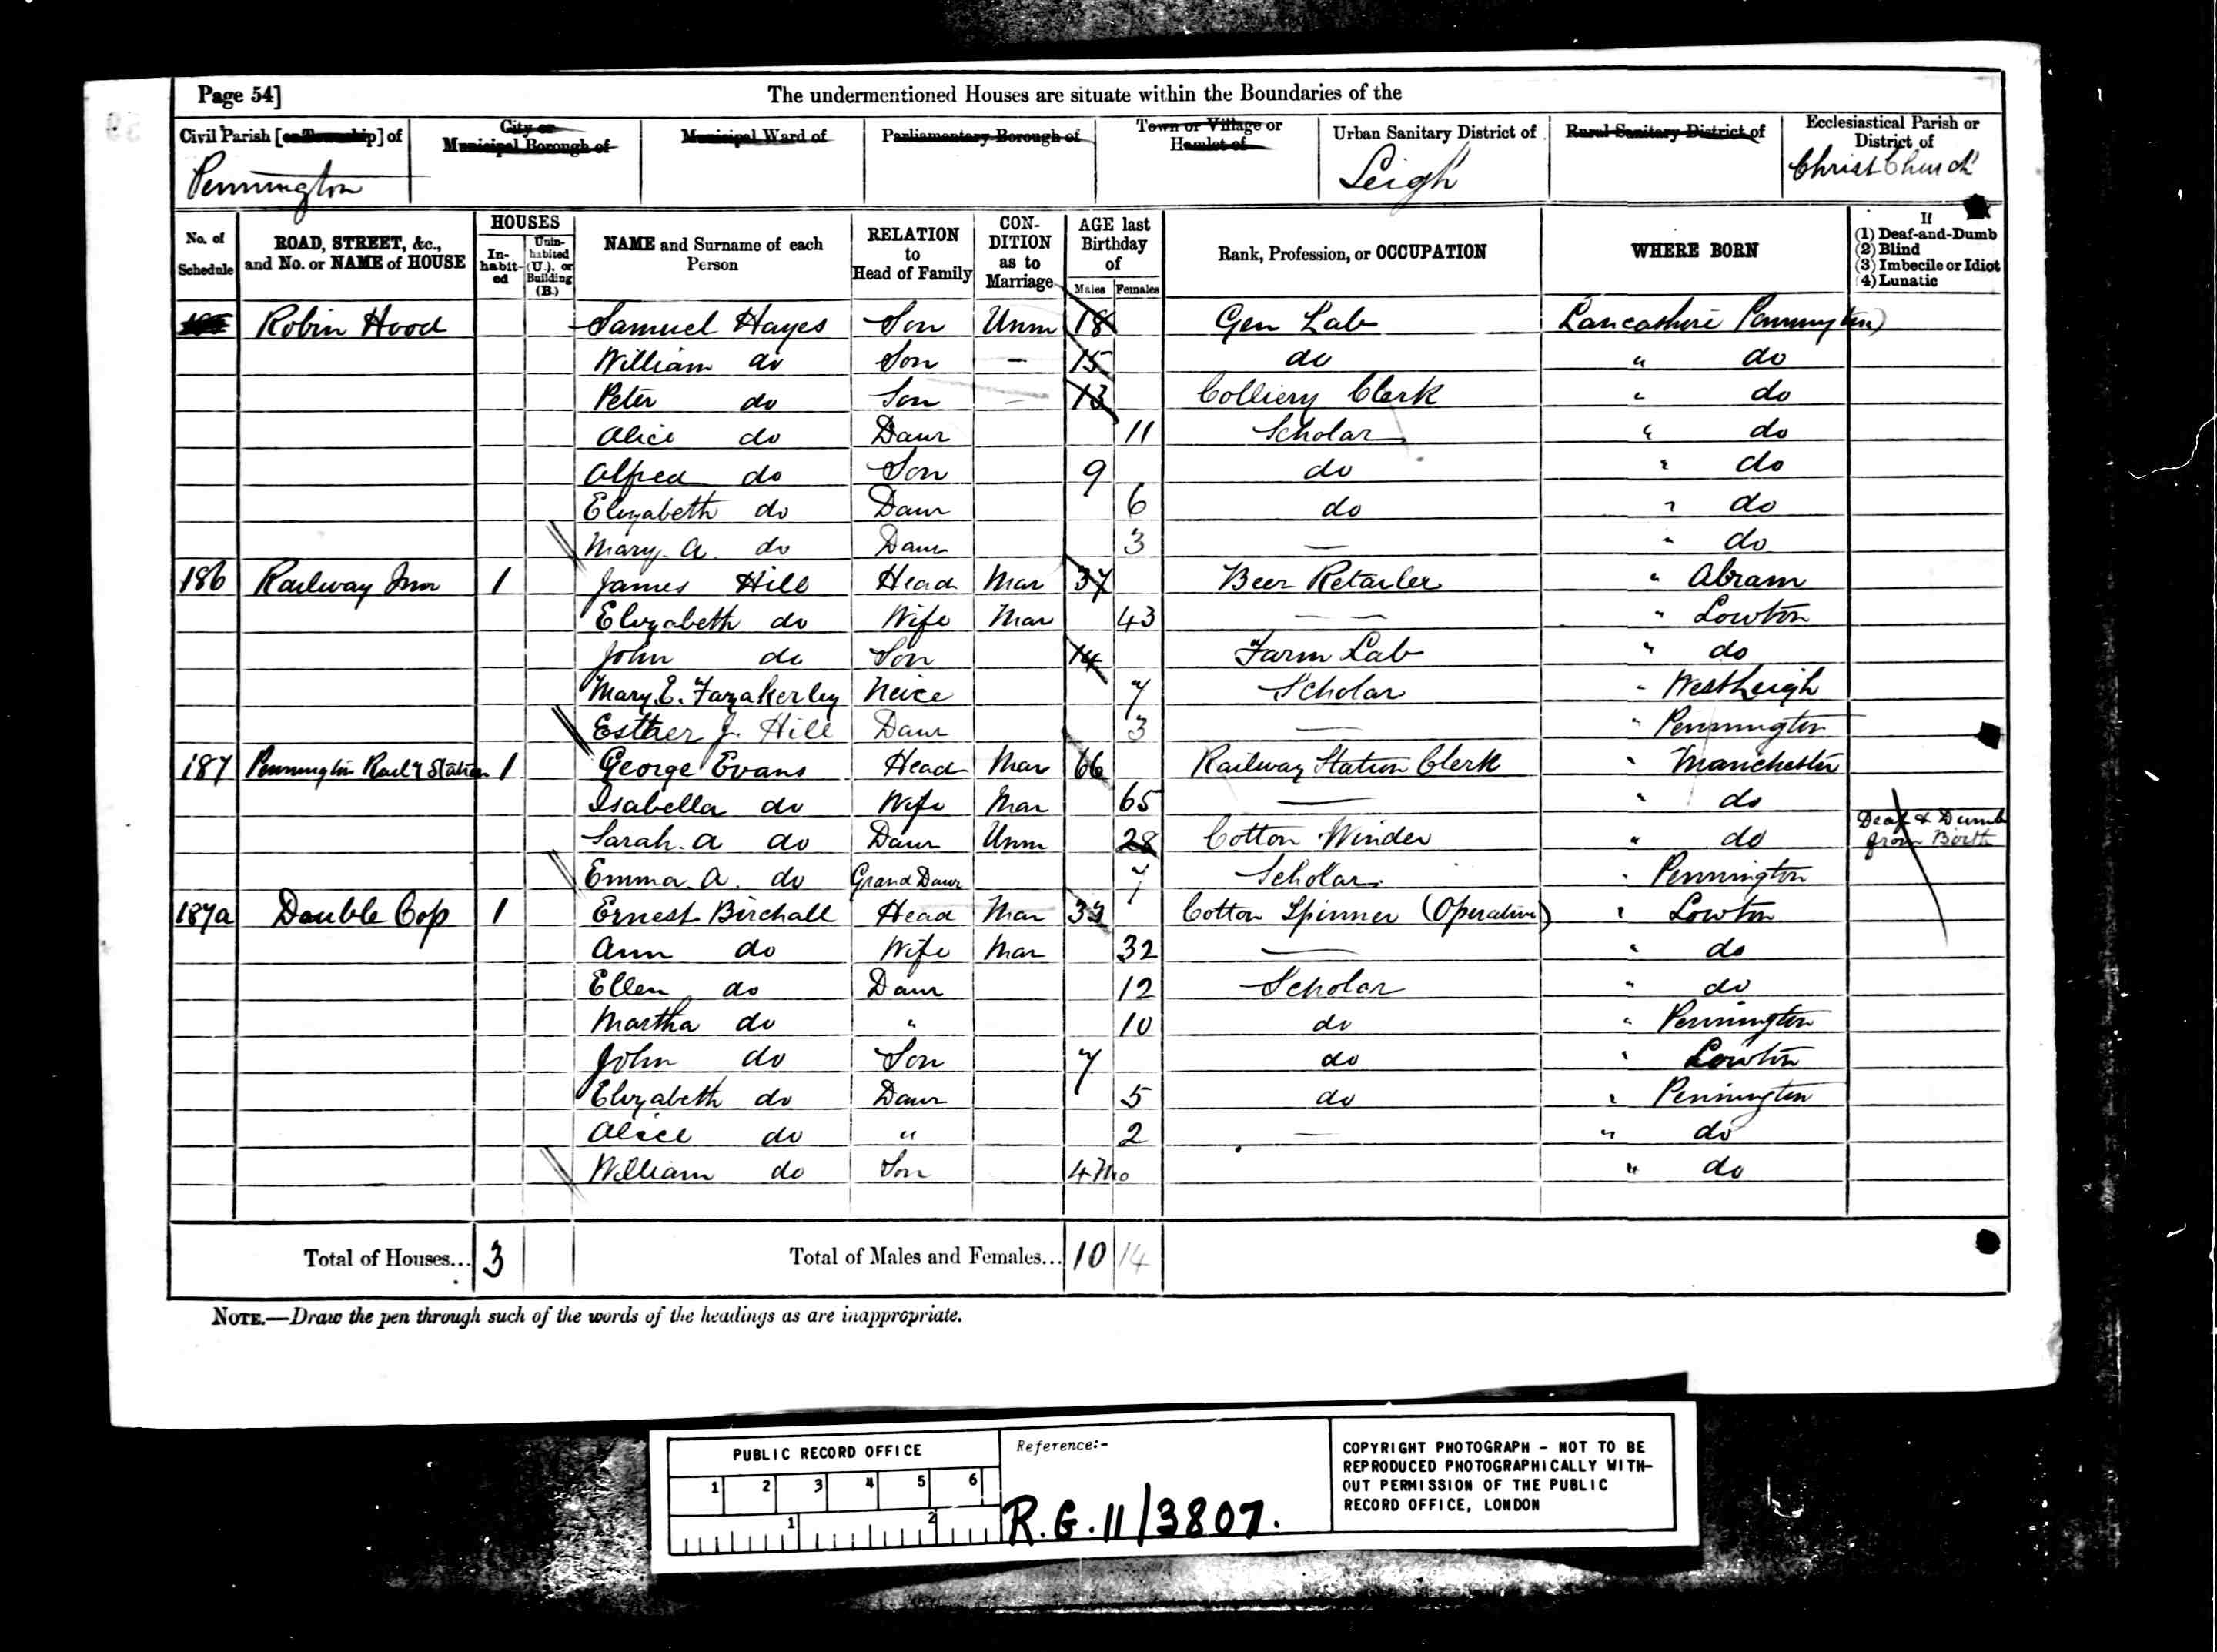 Page 54]
The undermentioned Houses are situate within the Boundaries of the
Civil Parish [or Township] of
City or Municipal Borough of
Municipal Ward of
Parliamentary Borough of
Town or Village or Hamlet of
Urban Sanitary District of
Rural Sanitary District of
Ecclesiastical Parish or District of
Pennington
Leigh
Christ Church
No. of Schedule
ROAD, STREET, &c., and No. or NAME of HOUSE
HOUSES
In-habit-ed
Unin-habited (U.), or Building (B.)
NAME and Surname of each Person
RELATION to Head of Family
CON-DITION as to Marriage
AGE last Birthday of
Males
Females
Rank, Profession, or OCCUPATION
WHERE BORN
If
(1) Deaf-and-Dumb
(2) Blind
(3) Imbecile or Idiot
(4) Lunatic
Robin Hood Samuel Hayes Son Unm 18 Gen Lab Lancashire Pennington
William do Son - 15 do " do
Peter do Son - 13 Colliery Clerk " do
Alice do Daur 11 Scholar " do
Alfred do Son 9 do " do
Elizabeth do Daur 6 do " do
Mary A. do Daur 3 — " do
186 Railway Inn 1 James Hill Head Mar 37 Beer Retailer " Abram
Elizabeth do Wife Mar 43 — " Lowton
John do Son 14 Farm Lab " do
Mary E. Fazakerley Neice 7 Scholar " WestLeigh
Esther J. Hill Daur 3 — " Pennington
187 Pennington Raily Station 1 George Evans Head Mar 66 Railway Station Clerk " Manchester
Isabella do Wife Mar 65 — " do
Sarah. A do Daur Unm 28 Cotton Winder " do Deaf & Dumb from Birth
Emma. A. do Grand Daur 7 Scholar " Pennington
187a Double Cop 1 Ernest Birchall Head Mar Cotton Spinner (Operative) " Lowton
Ann do Wife Mar 32 — " do
Ellen do Daur 12 Scholar " do
Martha do " 10 do " Pennington
John do Son 7 do " Lowton
Elizabeth do Daur 5 do " Pennington
Alice do " 2 — " do
William do Son 4 Mo " do
Total of Houses... 3 Total of Males and Females... 10 14
NOTE.—Draw the pen through such of the words of the headings as are inappropriate.
PUBLIC RECORD OFFICE
1 2 3 4 5 6
1 2
Reference:-
R.G. 11/3807.
COPYRIGHT PHOTOGRAPH - NOT TO BE
REPRODUCED PHOTOGRAPHICALLY WITH-
OUT PERMISSION OF THE PUBLIC
RECORD OFFICE, LONDON